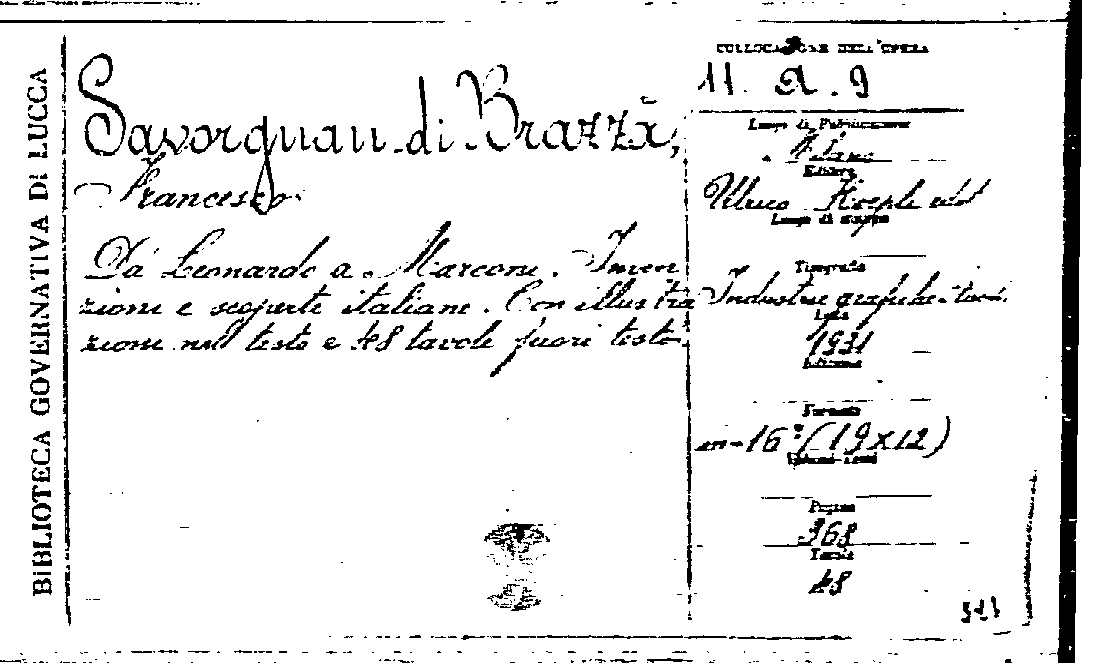 BIBLIOTECA GOVERNATIVA DI LUCCA
Savorgnan di Brazzà,
Francesco
Da Leonardo a Marconi. Inven
zioni e scoperte italiane. Con illustra
zioni nel testo e 48 tavole fuori testo.
COLLOCAZIONE DELL'OPERA
11. a. 9
Luogo di Pubblicazione
Milano
Editore
Ulrico Hoepli edit
Luogo di stampa
Tipografia
Industrie grafiche
Data
1931
Edizione
Formato
in-16° (19x12)
Volumi-Tomi
Pagine
368
Tavole
48